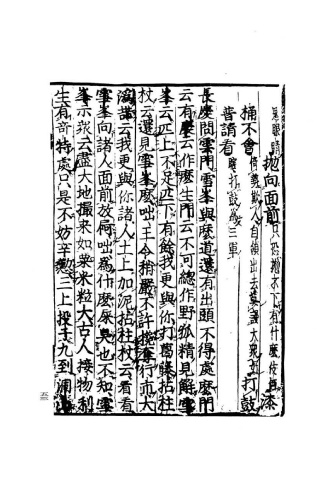 拋向面前只恐拋不下有什麼伎倆漆
桶不會倚勢欺人自領出去莫謾大衆好打鼓
普請看瞎打鼓為三軍
長慶問雲門雪峯與麼道還有出頭不得處麼門
云有慶云作麼生門云不可總作野狐精見解雪
峯云匹上不足匹下有餘我更與你打葛藤拈拄
杖云還見雪峯麼咄王令稍嚴不許攙奪行市大
潙喆云我更與你諸人土上加泥拈拄杖云看看
雪峯向諸人面前放屙咄為什麼屎臭也不知雪
峯示衆云盡大地撮來如粟米粒大古人接物利
生有奇特處只是不妨辛懃三上投子九到洞山